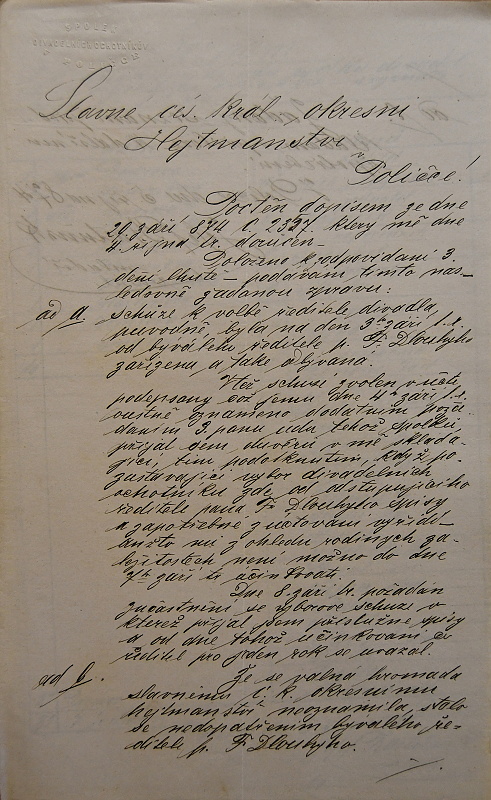 SPOLEK
DIVADELNÍCH OCHOTNÍKŮ
V POLIČCE
Slavné cís. král. okresní
Hejtmanství
v Poličce!
Poctěn dopisem ze dne
20 září 874 č. 2327. který mě dne
4. října t.r. doručen –
Doloženo k odpovídání 3.
denní lhůtě – podávám tímto nás-
ledovně žádanou zprávu:
ad a. schůze k volbě ředitele divadla,
původně, byla na den 3ho září t.r.
od bývalého ředitele p. F. Dlouhýho
zařízena a také odbývaná.
V též schůzi zvolen v účtě
podepsaný což jemu dne 4ho září t.r.
oustně oznámeno dodatním požá-
daním 3. panů údů tohož spolku,
přijal jsem důvěru v mě skláda-
jící, tím podotknutím, když po-
zustávající výbor divadelních
ochotníků zde od odstupujícího
ředitele pana F. Dlouhýho spisy
a zapotřebné zúčtování vyřídí –
anžto mi z ohledu rodinných zá-
ležitostech není možno do dne
7ho září t.r. účinkovati.
Dne 8. září t.r. požádán
zúčastnění se výborové schůze v
kteréž přijal jsem příslušné spisy
a od dne tohož účinkování co
ředitel pro jeden rok se uvázal.
ad b. Že se valná hromada
slavnému c. k. okresnímu
hejtmanství neoznámila, stalo
se nedopatřením bývalého ře-
ditele p. F. Dlouhýho.